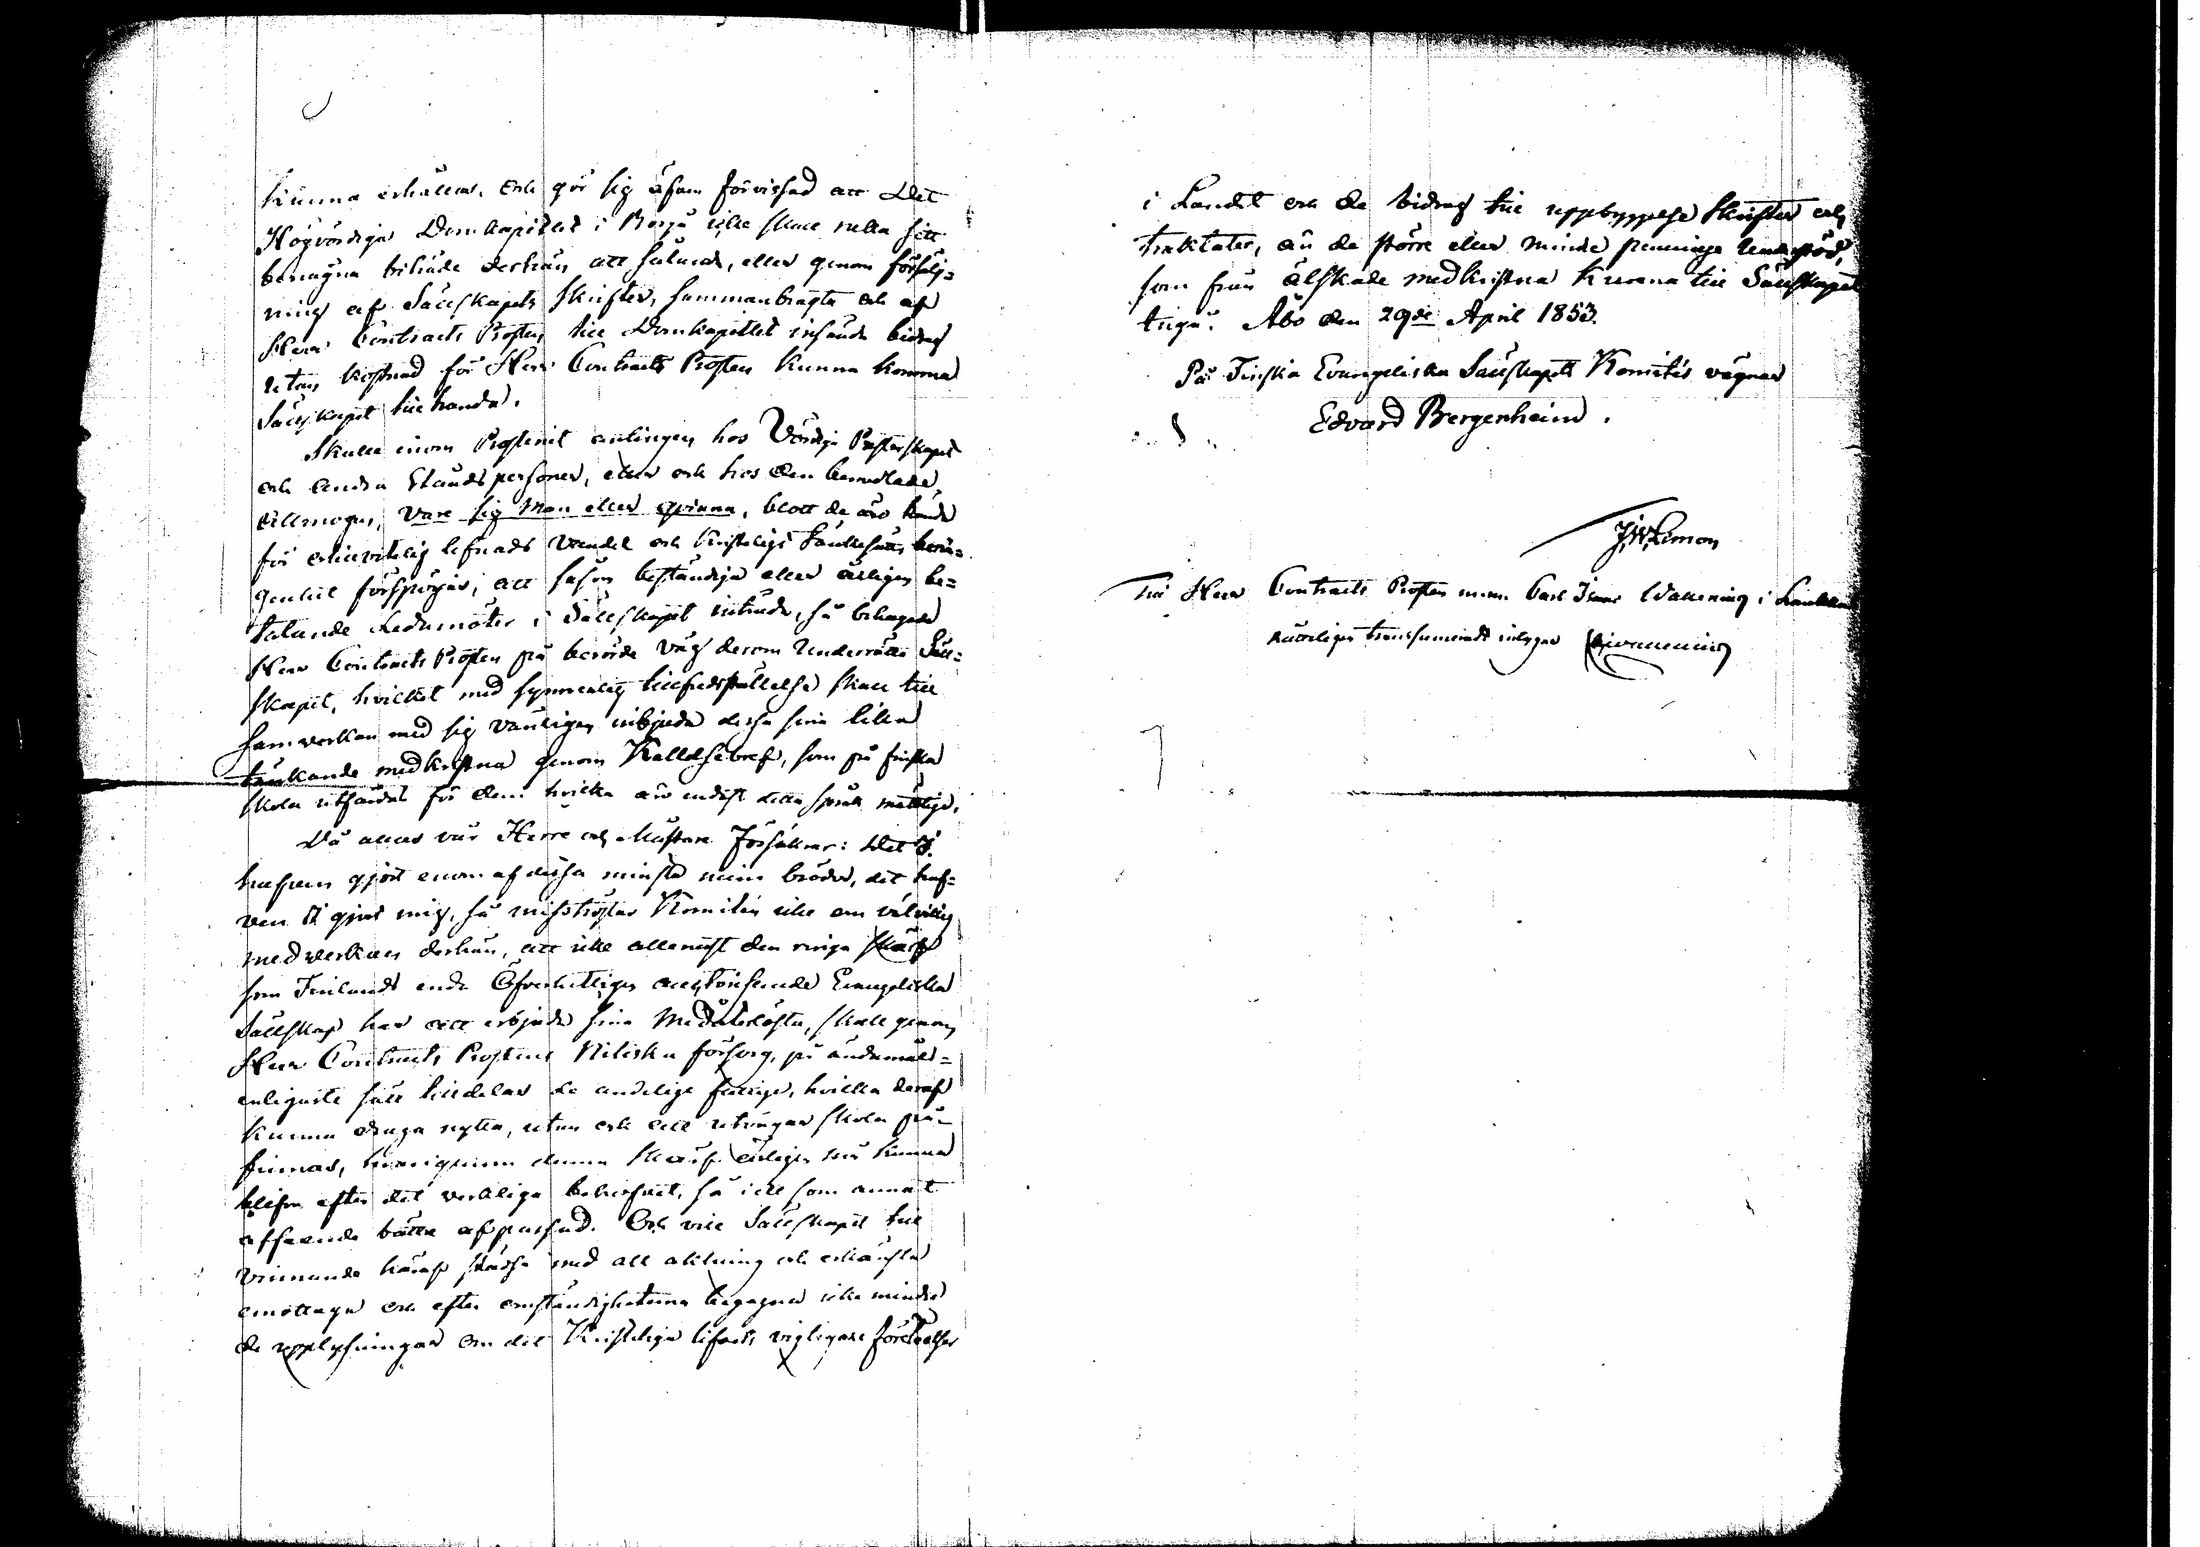 kunna erhållas, och gör sig äfven förvissad att Det
Högvördiga Domkapitlet i Borgå icke skall neka sitt
benägna biträde derhän att sålunda, eller genom försälj=
ning af Sällskapets skrifter, sammanbragta och af
Herr Contracts Prosten till Domkapitlet insända bidrag
utan kostnad för Herr Contracts Prosten kunna komma
Sällskapet tillhanda.
Skulle inom Prosteriet antingen hos Vördige Presterskapet
och andra Ståndspersoner, eller och hos den bemedlade
Allmogen, vare sig Man eller qvinna, blott de äro kände
för oförvitelig lefnads vandel och Kristeligt tänkesätt, benä=
genhet förspörjas, att såsom beständiga eller årligen be=
talande Ledamöter i Sällskapet inträda, så behagade
Herr Contracts Prosten på berörde väg derom underrätta Säll=
skapet, hvilket med synnerlig tillfredsställelse skall till
samverkan med sig vänligen inbjuda dessa sina lika
tänkande medkristna genom Kallelsebref, som på finska
skola utfärdas för dem hvilka äro endast detta språk mäktige.
Då alltså vår Herre och Mästare försäkrar: Det I.
hafven gjort enom af dessa minsta mina bröder, det haf=
ven I gjort mig, så misströstar Komitén icke om välvillig
medverkan derhän, att icke allenast den ringa skärf
som Finlands enda Öfverhetligen auctoriserade Evangeliska
Sällskap har att erbjuda sina Medåterlösta, skall genom
Herr Contracts Prostens nitiska försorg, på ändamåls=
enligaste sätt tilldelas de andeligt fattige, hvilka deraf
kunna draga nytta, utan och att utvägar skola på=
finnas, hvarigenom denna skärf årligen må kunna
blifva efter det verkliga behofvet, så i ett som annat
afseende bättre afpassad. Och vill Sällskapet till
vinnande häraf städse med all aktning och erkänsla
emottaga och efter omständigheterna begagna icke mindre
de upplysningar om det Kristeliga lifvets vigtigare företeelser
i Landet och de bidrag till uppbyggelse skrifter och
traktater, än de större eller mindre penninge understöd,
som från älskade medkristna kunna till Sällskapet
ingå. Åbo den 29de April 1853.
På Finska Evangeliska Sällskapets Komités vägnar
Edvard Bergenheim.
Till Herr Contracts Prosten m.m. Carl Isaac